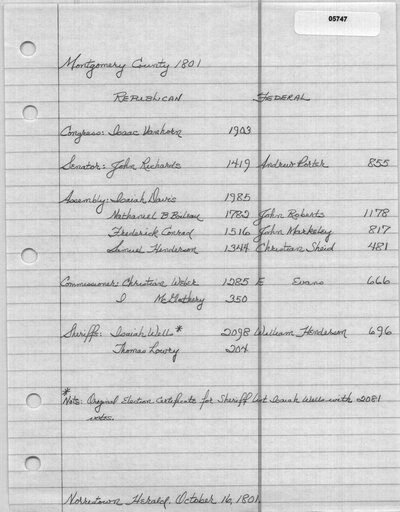 05747
Montgomery County 1801
REPUBLICAN FEDERAL
Congress: Isaac Vanhorn 1903
Senator: John Richards 1419 Andrew Porter 855
Assembly: Isaiah Davis 1985
Nathaniel B Boileau 1782 John Roberts 1178
Frederick Conrad 1516 John Markeley 817
Samuel Henderson 1344 Christian Sheid 481
Commissioner: Christian Weber 1285 E Evans 666
I McGlathery 350
Sheriff: Isaiah Wells* 2098 William Henderson 696
Thomas Lowry 204
*
Note: Original Election Certificate for Sheriff list Isaiah Wells with 2081
votes.
Norristown Herald. October 16, 1801